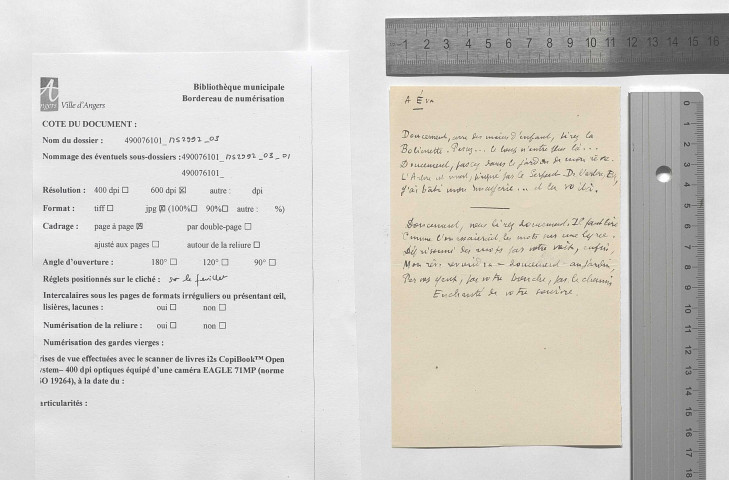 Bibliothèque municipale
Bordereau de numérisation
A
ngers Ville d'Angers
COTE DU DOCUMENT :
Nom du dossier : 490076101_ms2992_03
Nommage des éventuels sous-dossiers : 490076101_ms2992_03_01
490076101_
Résolution : 400 dpi ☐ 600 dpi ☒ autre : dpi
Format : tiff ☐ jpg ☒ (100% ☐ 90% ☐ autre : %)
Cadrage : page à page ☒ par double-page ☐
ajusté aux pages ☐ autour de la reliure ☐
Angle d'ouverture : 180° ☐ 120° ☐ 90° ☐
Réglets positionnés sur le cliché : sur le feuillet
Intercalaires sous les pages de formats irréguliers ou présentant œil,
lisières, lacunes : oui ☐ non ☐
Numérisation de la reliure : oui ☐ non ☐
Numérisation des gardes vierges :
rises de vue effectuées avec le scanner de livres i2s CopiBook™ Open
ystem– 400 dpi optiques équipé d'une caméra EAGLE 71MP (norme
SO 19264), à la date du :
articularités :
1 2 3 4 5 6 7 8 9 10 11 12 13 14 15 16
A Éva
Doucement, avec des mains d'enfant, tirez la
Bobinette. le loup n'entre plus là...
Doucement, passez sous le jardin de mon rêve.
L'Arbre est mort, par le Serpent. De l'arbre, Ève,
J'ai bâti mon et la voilà.
Doucement, vous lirez doucement. Il faut lire
Comme l'on essaierait les mots sur une lyre.
par votre voix, enfin,
Mon rêve doucement au jardin,
Par vos yeux, par votre bouche, par le chemin
Enchanté de votre sourire.
0 1 2 3 4 5 6 7 8 9 10 11 12 13 14 15 16 17 18